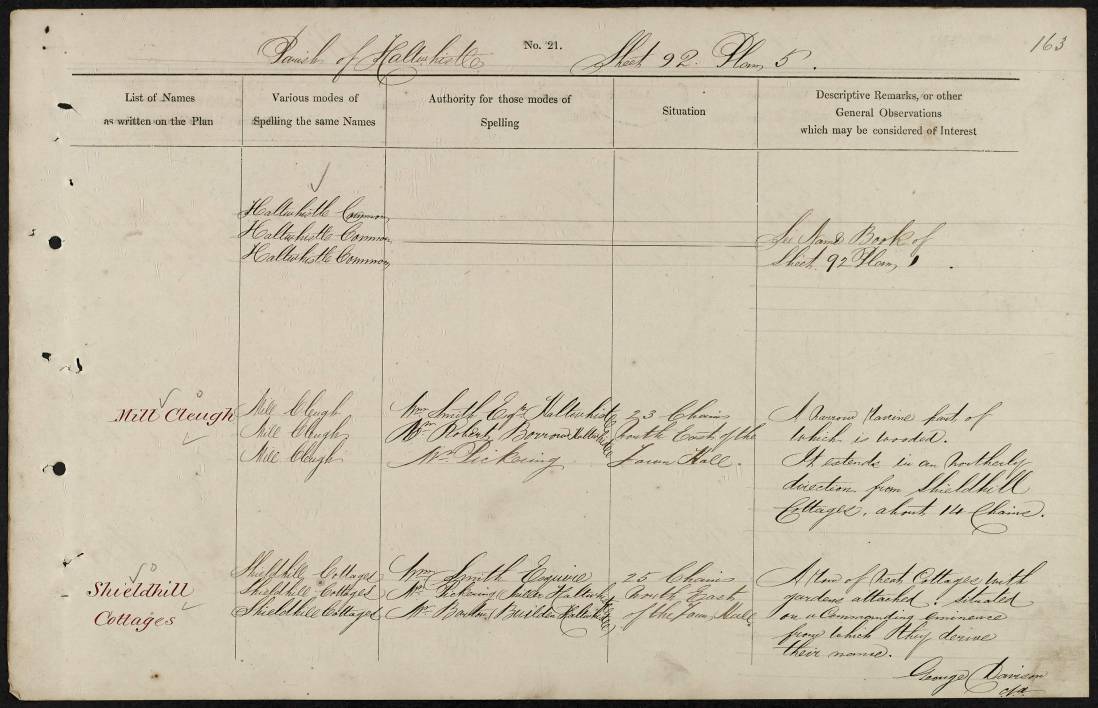 163
No. 21.
Parish of Haltwhistle Sheet 92 Plan 5.
List of Names
as written on the Plan
Various modes of
Spelling the same Names
Authority for those modes of
Spelling
Situation
Descriptive Remarks, or other
General Observations
which may be considered of Interest
Haltwhistle Common
Haltwhistle Common
Haltwhistle Common
See Name Book of
Sheet 92 Plan 1.
Mill Cleugh
Mill Cleugh
Mill Cleugh
Mill Cleugh
Wm Smith Esqr Haltwhistle
Mr Robert Borrow Haltwhistle
Mr Pickering
23 Chains
North East of the
Town Hall.
A narrow ravine part of
which is wooded.
It extends in an northerly
direction from Shieldhill
Cottages, about 14 Chains.
Shieldhill
Cottages
Shieldhill Cottages
Shieldhill Cottages
Shieldhill Cottages
Wm Smith Esquire
Mr Pickering Haltwhistle
Mr Builder Haltwhistle
25 Chains
North East
of the Town Hall.
A Row of neat Cottages with
gardens attached. Situated
on a Commanding eminence
from which they derive
their name.
George Davison
c/a